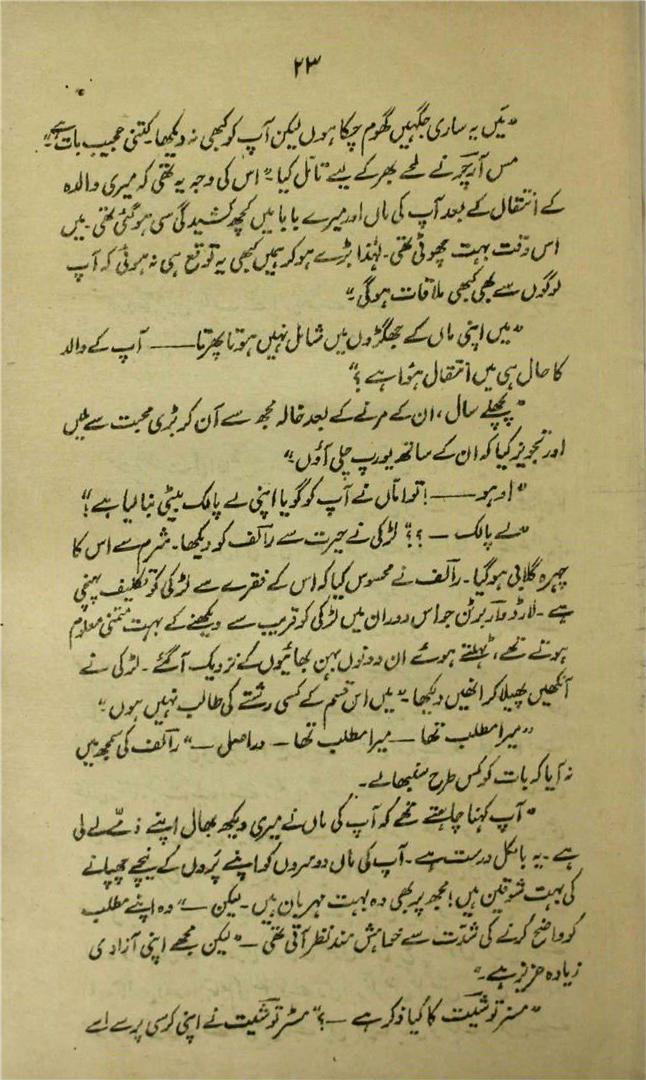 ۲۳
"میں یہ ساری جگہیں گھوم چکا ہوں لیکن آپ کو کبھی نہ دیکھا کتنی عجیب بات ہے"
مس آرچر نے لمحے بھر کے لیے تامل کیا "اس کی وجہ یہ تھی کہ میری والدہ
کے انتقال کے بعد آپ کی ماں اور میرے بابا میں کچھ کشیدگی سی ہو گئی تھی۔ میں
اس وقت بہت چھوٹی تھی۔ لہٰذا بڑے ہو کر ہمیں کبھی یہ توقع ہی نہ ہوئی کہ آپ
لوگوں سے بھی کبھی ملاقات ہو گی"
"میں اپنی ماں کے جھگڑوں میں شامل نہیں ہوتا پھرتا —— آپ کے والد
کا حال ہی میں انتقال ہوا ہے؟"
"پچھلے سال، ان کے مرنے کے بعد خالہ مجھ سے آن کر بڑی محبت سے ملیں
اور تجویز کیا کہ ان کے ساتھ یورپ چلی آؤں"
"اوہو ——! تو اماں نے آپ کو گویا اپنی لے پالک بیٹی بنا لیا ہے!"
"لے پالک —؟؟" لڑکی نے حیرت سے رالف کو دیکھا۔ شرم سے اس کا
چہرہ گلابی ہو گیا۔ رالف نے محسوس کیا کہ اس کے فقرے سے لڑکی کو تکلیف پہنچی
ہے۔ لارڈ واربرٹن جو اس دوران میں لڑکی کو قریب سے دیکھنے کے بہت متمنی معلوم
ہوتے تھے، ٹہلتے ہوئے ان دونوں بہن بھائیوں کے نزدیک آ گئے۔ لڑکی نے
آنکھیں پھیلا کر انھیں دیکھا۔ "میں اس قسم کے کسی رشتے کی طالب نہیں ہوں"
"میرا مطلب تھا — میرا مطلب تھا — دراصل —" رالف کی سمجھ میں
نہ آیا کہ بات کو کس طرح سنبھالے۔
"آپ کہنا چاہتے تھے کہ آپ کی ماں نے میری دیکھ بھال اپنے ذمّے لے لی
ہے۔ یہ بالکل درست ہے۔ آپ کی ماں دوسروں کو اپنے پروں کے نیچے چھپانے
کی بہت شوقین ہیں! مجھ پر بھی وہ بہت مہربان ہیں۔ لیکن —" وہ اپنے مطلب
کو واضح کرنے کی شدّت سے خواہش مند نظر آتی تھی — "لیکن مجھے اپنی آزادی
زیادہ عزیز ہے۔"
"مسز توشیت کا کیا ذکر ہے —؟" مسٹر توشیت نے اپنی کرسی پر سے اسے